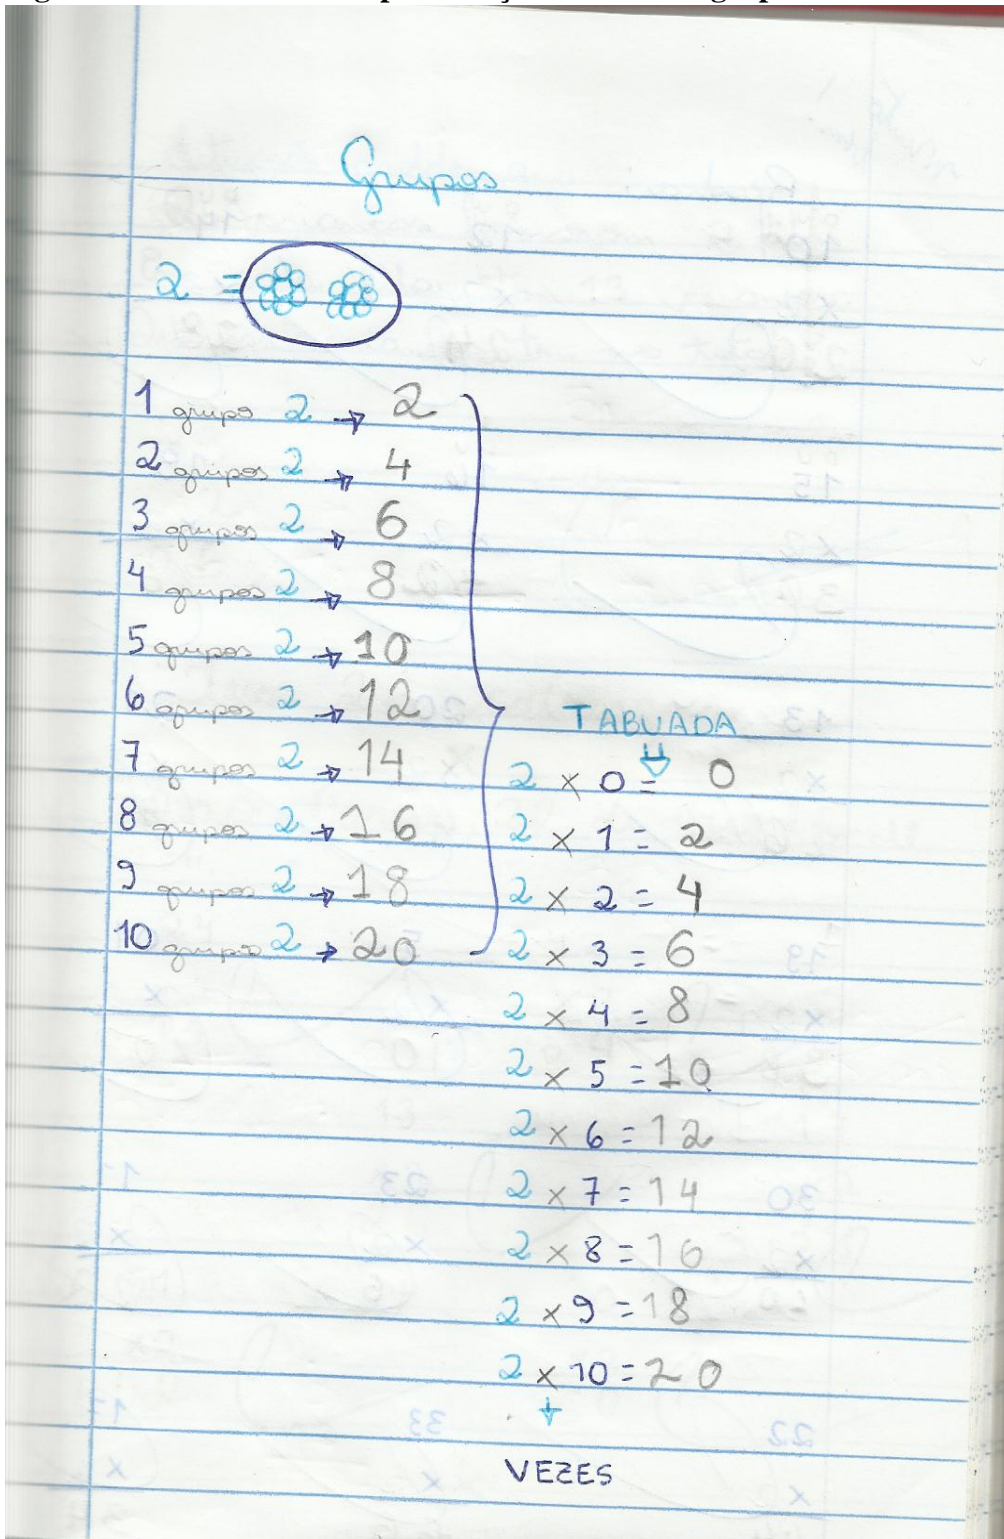 Grupos
2 =
1 grupo 2 → 2
2 grupos 2 → 4
3 grupos 2 → 6
4 grupos 2 → 8
5 grupos 2 → 10
6 grupos 2 → 12
7 grupos 2 → 14
8 grupos 2 → 16
9 grupos 2 → 18
10 grupos 2 → 20
TABUADA
2 × 0 = 0
2 × 1 = 2
2 × 2 = 4
2 × 3 = 6
2 × 4 = 8
2 × 5 = 10
2 × 6 = 12
2 × 7 = 14
2 × 8 = 16
2 × 9 = 18
2 × 10 = 20
VEZES